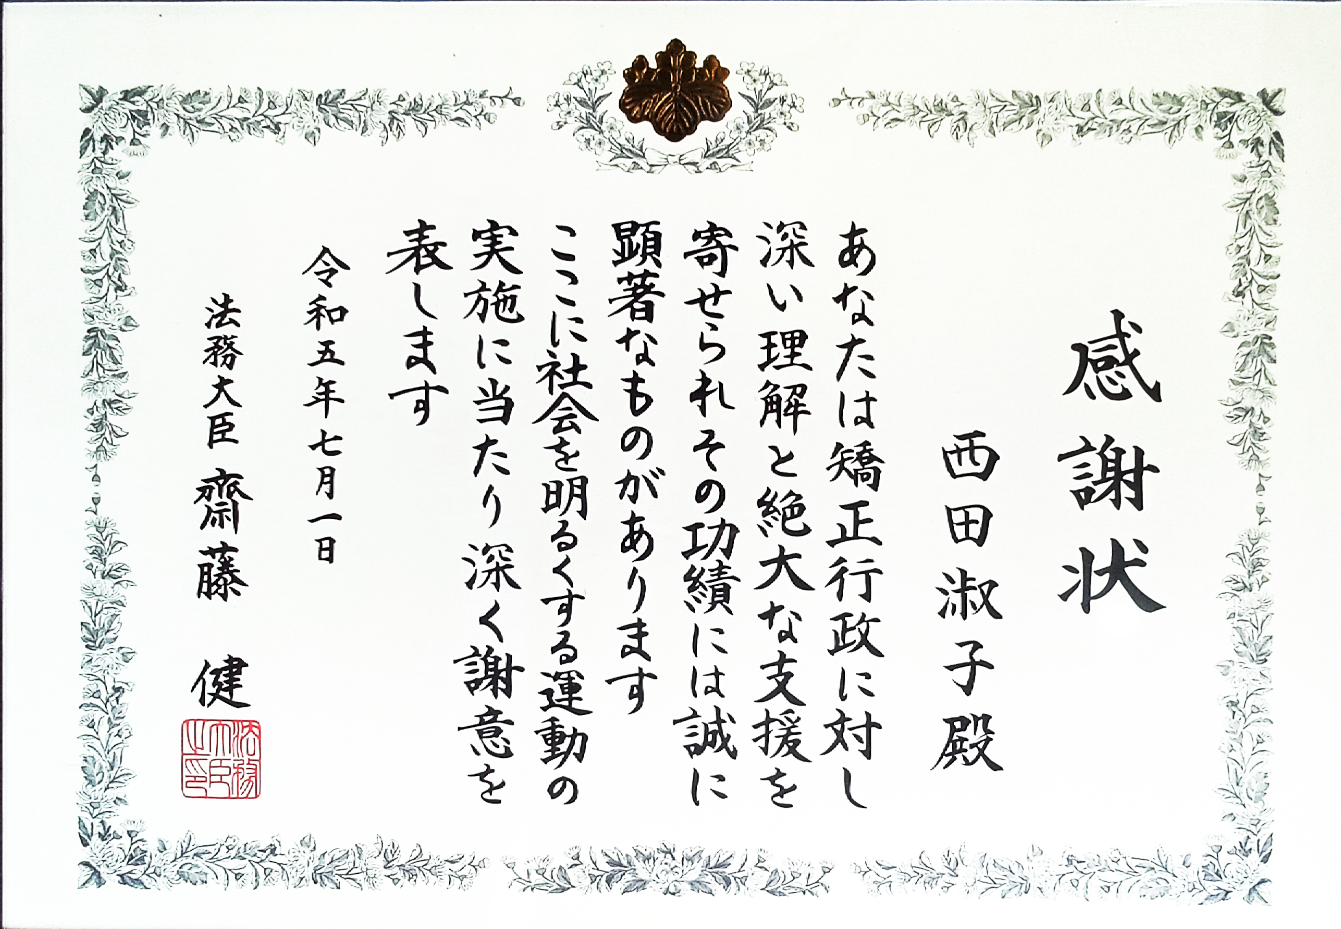 感謝状
西田淑子殿
あなたは矯正行政に対し
深い理解と絶大な支援を
寄せられその功績には誠に
顕著なものがあります
ここに社会を明るくする運動の
実施に当たり深く謝意を
表します
令和五年七月一日
法務大臣 齋藤 健
法務大臣之印